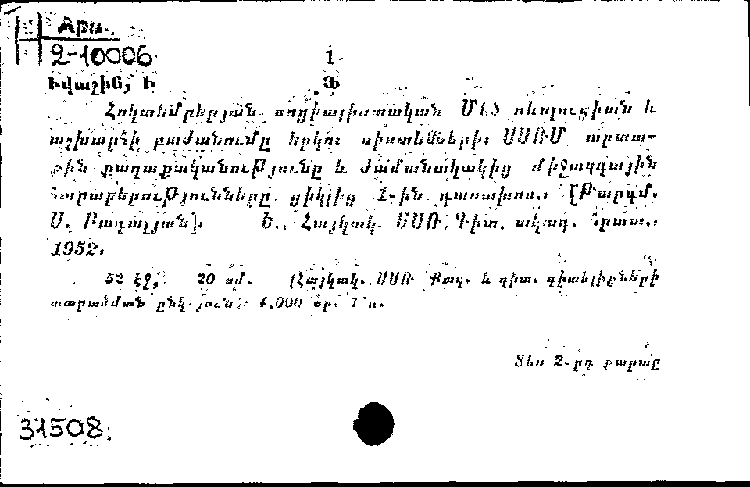 Арм.
2-10006 1
Իվաշին, Ի Ֆ
Հոկտեմբերյան սոցիալիստական Մեծ ռևոլուցիան և
աշխարհի բաժանումը երկու սիստեմների։ ՍՍՌՄ արտա-
քին քաղաքականությունը և ժամանակակից միջազգային
հարաբերությունները ցիկլից 1-ին դասախոս.։ [Թարգմ.
Ս. Բաղալյան]։ Ե., Հայկակ. ՍՍՌ Գիտ. ակադ. հրատ.,
1952։
52 էջ, 20 սմ. (Հայկակ. ՍՍՌ Քաղ. և գիտ. գիտելիքների
տարածման ընկ. 4.000 օր.
Տես 2-րդ քարտը
31508